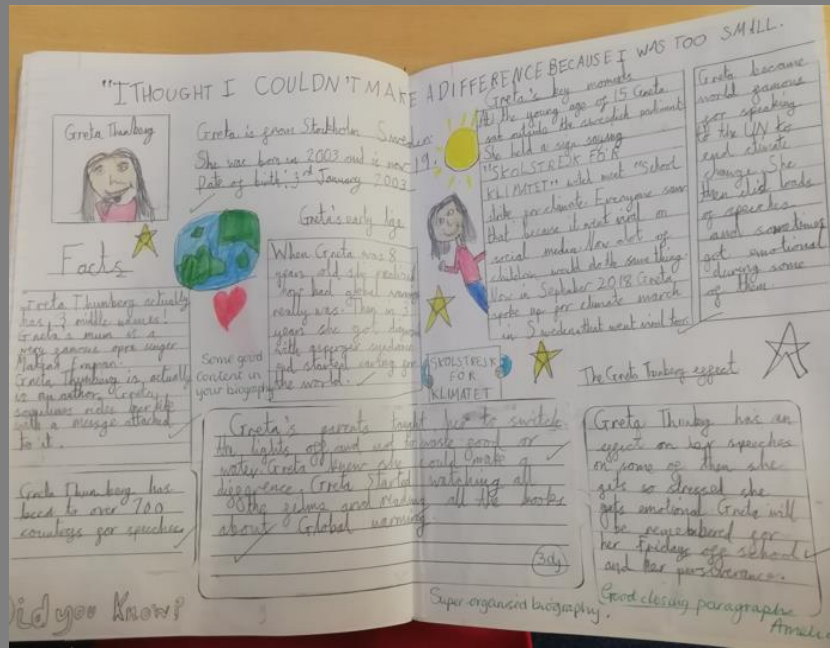 "I THOUGHT I COULDN'T MAKE A DIFFERENCE BECAUSE I WAS TOO SMALL.
Greta Thunberg
Facts
Greta Thunberg actually
has 3 middle names!
Greata's mum is a
very famous opra singer
Greta Thunberg is actually
is an author. Greta
sometimes rides her bike
with a message attached
to it.
Greta Thunberg has
been to over 200
countries for speeches
Did you Know?
Greta is from Stockholm
She was born in 2003 and is now 19.
Date of birth: 3rd January 2003
Greta's early age
When Greta was 8
years old she realised
how bad global
really was. Then in 3
years she got
with asperger
and started caring for
the world.
Some good
content in
your biography
Greta's parents taught her to switch
the lights off and not to waste food or
water. Greta knew she could make a
difference. Greta Started watching all
the films and reading all the books
about Global warming.
3dj
Greta's key moments
At the young age of 15 Greta
sat outside the swedish
She held a sign saying
"SKOLSTREJK FÖR
KLIMATET" witch ment "School
strike for climate. Everyone saw
that because it went viral on
social media. Now alot of
children would do the same thing.
Now in September 2018 Greta
spoke up for climate march
in Sweden that went viral too.
Greta became
world famous
for speaking
to the UN to
end climate
change. She
then did loads
of speeches
and sometimes
got emotional
during some
of them.
SKOLSTREJK
FÖR
KLIMATET
The Greta Thunberg effect
Greta Thunbg has an
effect on her speeches
on some of them she
gets so stressed she
gets emotional. Greta will
be remembered for
her Fridays off school
and her perseverance.
Super organised biography.
Good closing paragraph